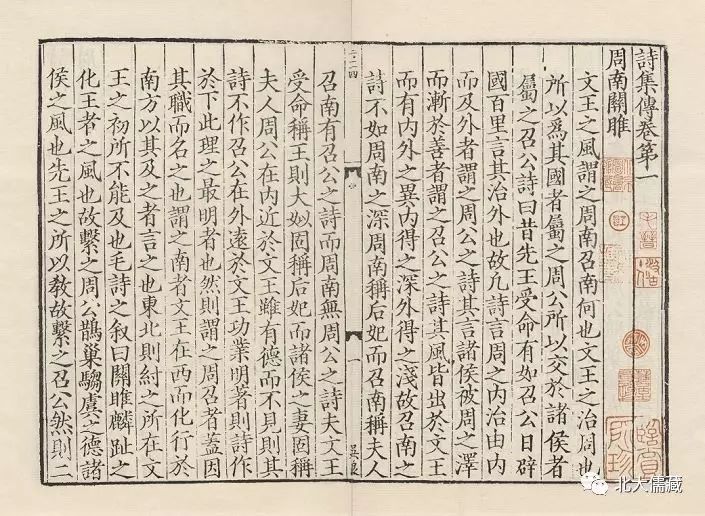 詩集傳卷第一
周南關雎
文王之風謂之周南召南何也文王之治周也
所以為其國者屬之周公所以交於諸侯者
屬之召公詩曰昔先王受命有如召公日辟
國百里言其治外也故凡詩言周之内治由内
而及外者謂之周公之詩其言諸侯被周之澤
而漸於善者謂之召公之詩其風皆出於文王
而有内外之異内得之深外得之淺故召南之
詩不如周南之深周南稱后妃而召南稱夫人
召南有召公之詩而周南無周公之詩夫文王
受命稱王則大姒固稱后妃而諸侯之妻固稱
夫人周公在内近於文王雖有德而不見則其
詩不作召公在外遠於文王功業明著則詩作
於下此理之最明者也然則謂之周召者蓋因
其職而名之也謂之南者文王在西而化行於
南方以其及之者言之也東北則紂之所在文
王之初所不能及也毛詩之叙曰關雎麟趾之
化王者之風也故繫之周公鵲巢騶虞之德諸
侯之風也先王之所以教故繫之召公然則二
二二四
一
吴良
北大儒藏